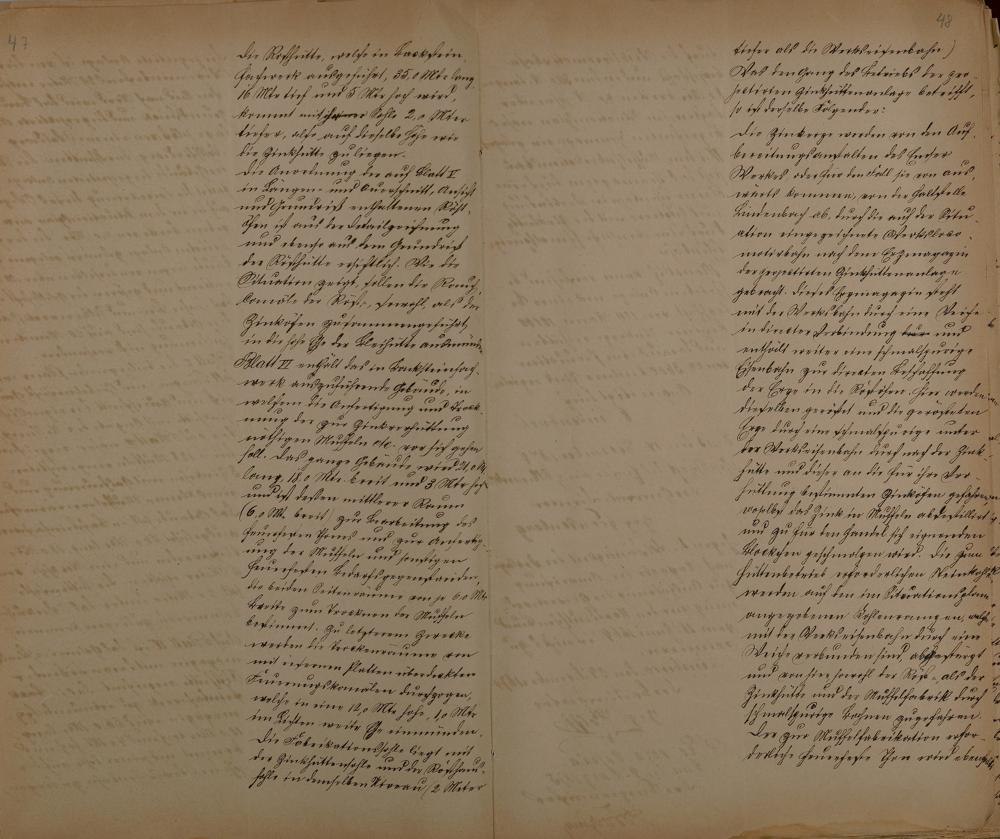 47
die Rösthütte, welche in Backstein-
fachwerk ausgeführt, 35,0 Mtr lang
16 Mtr tief und 5 Mtr hoch wird,
kommt mit ihrer Sohle 2,0 Mtr
tiefer, also auf dieselbe Höhe wie
die Zinkhütte zu liegen.
Die Anordnung der auf Blatt V
in Langen- und Querschnitt, Ansicht
und Grundriß enthaltenen Röst-
öfen ist aus der Detailzeichnung
und ebenso aus dem Grundriß
der Rösthütte ersichtlich. Wie die
Situation zeigt, sollen die Rauch-
kanäle der Röst-, sowohl, als der
Zinköfen zusammengeführt,
in die hohe Esse der Bleihütte ausmünden.
Blatt VI enthält das in Backsteinfach-
werk auszuführende Gebäude, in
welchem die Anfertigung und Trock-
nung der zur Zinkverhüttung
nöthigen Muffeln etc. vor sich gehen
soll. Das ganze Gebäude wird 21,0 M
lang 18,0 Mtr breit und 3 Mtr hoch
und ist dessen mittlerer Raum
(6,0 Mtr breit) zur Bearbeitung des
feuerfesten Thones und zur Anferti-
gung der Muffeln und sonstigen
feuerfesten Bedarfsgegenständen,
die beiden Seitenräume von je 6,0 Mtr
Breite zum Trocknen der Muffeln
bestimmt. Zu letzterem Zwecke
werden die Trockenräume von
mit eisernen Platten überdeckten
Feuerungskanälen durchzogen,
welche in eine 12,0 Mtr hohe, 1,0 Mtr
im Lichten weite Esse einmünden.
Die Fabrikationssohle liegt mit
der Zinkhüttensohle und der Rösthaus-
sohle in demselben Niveau (2 Meter
48
tiefer als die Werkseisenbahn)
Was den Gang des Betriebs der pro-
jectirten Zinkhüttenanlage betrifft,
so ist derselbe Folgender:
Die Zinkerze werden von den Auf-
bereitungsanstalten des Emser
Werkes oder für den Fall sie von aus-
wärts kommen, von der Haltestelle
Lindenbach ab, durch die auf der Situ-
ation eingezeichnete Werksloco-
motivbahn nach dem Erzmagazin
der projectirten Zinkhüttenanlage
gebracht. Dieses Erzmagazin steht
mit der Werksbahn durch eine Weiche
in directer Verbindung und
enthält weiter eine schmalspurige
Eisenbahn zur directen Beschaffung
der Erze in die Röstöfen. Hier werden
dieselben geröstet und die gerösteten
Erze durch eine schmalspurige unter
der Werkseisenbahn durch nach der Zink-
hütte und dieser an die für ihre Ver-
hüttung bestimmten Zinköfen gefahren
woselbst das Zink in Muffeln abdestillirt
und zu für den Handel sich eignenden
Blöckchen geschmolzen wird. Die zum
Hüttenbetrieb erforderlichen Steinkohlen
werden auf den im Situationsplan
angegebenen Kohlenrampen, welche
mit der Werkseisenbahn durch eine
Weiche verbunden sind, abgestürzt
und von hier sowohl der Röst-, als der
Zinkhütte und der Muffelfabrik durch
schmalspurige Bahnen zugefahren.
Der zur Muffelfabrikation erfor-
derliche feuerfeste Thon wird ebenfalls